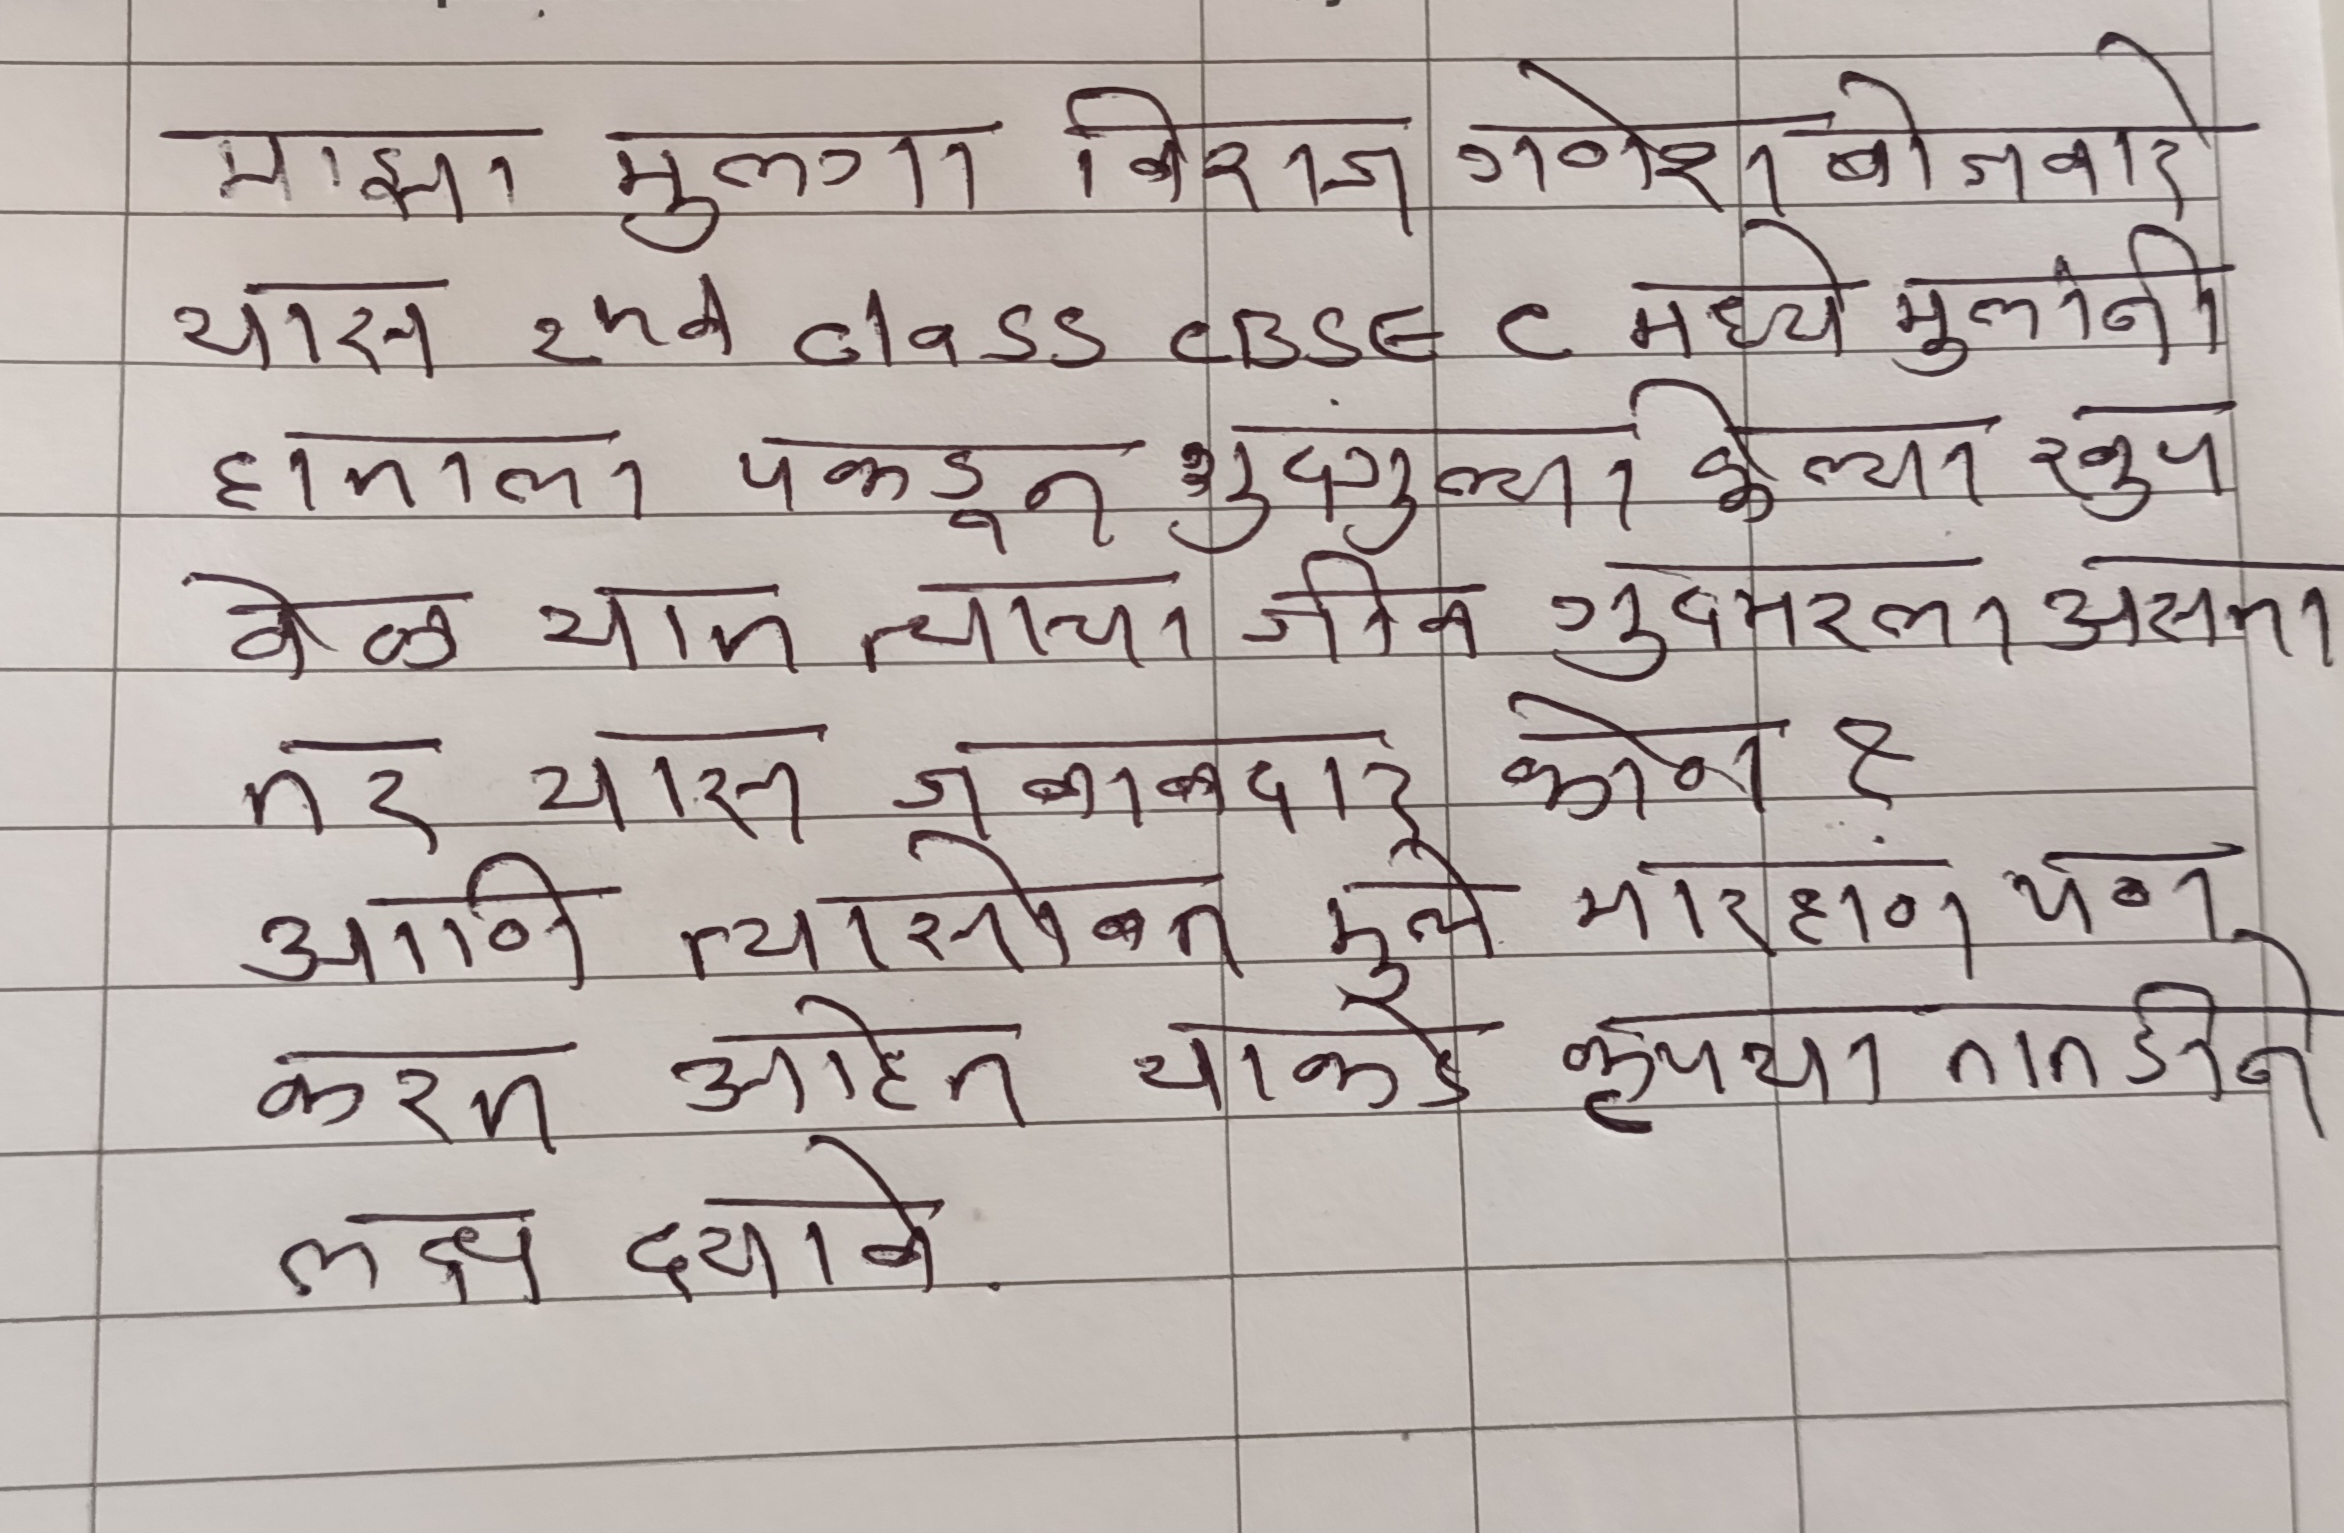 माझा मुलगा विराज गणेश बोजवारे
यास 2nd class CBSE C मध्ये मुलांनी
हाताला पकडून गुदगुल्या केल्या खुप
वेळ यात त्याचा जीव गुदमरला असता
तर यास जबाबदार कोण ?
आणि त्यासोबत मुले मारहाण पण
करत आहेत याकडे कृपया तातडीने
लक्ष दयावे.